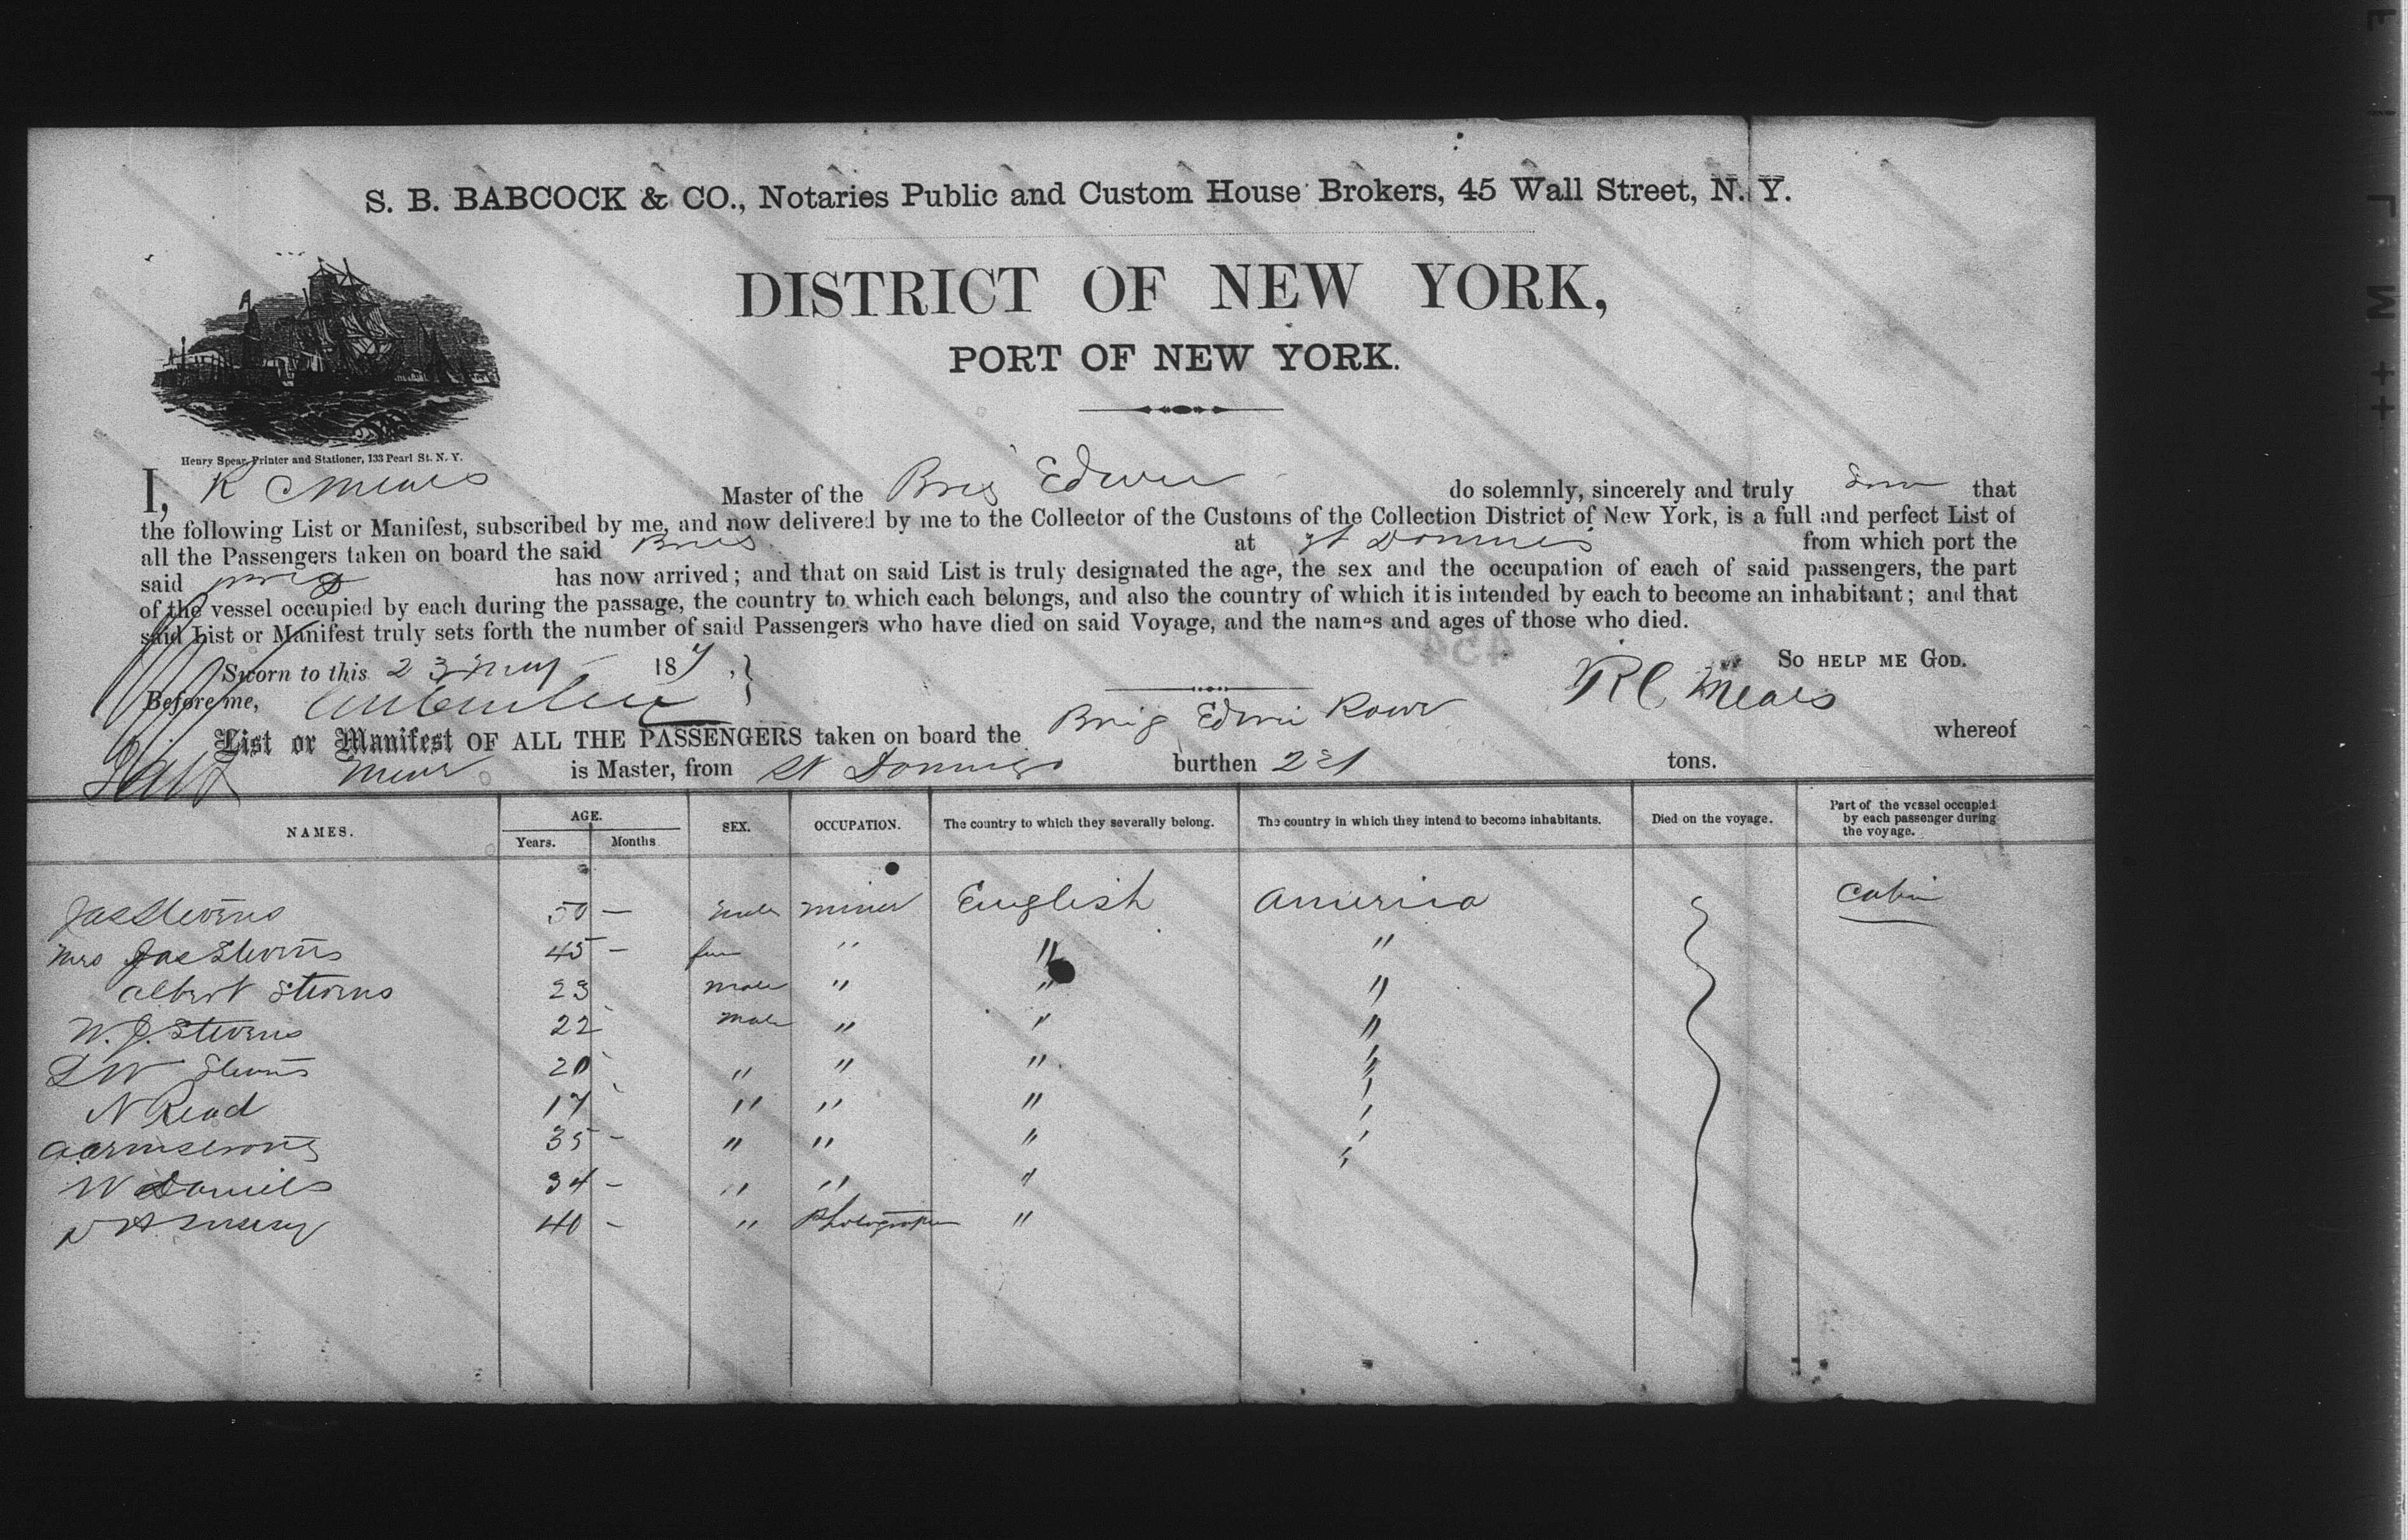 S. B. BABCOCK & CO., Notaries Public and Custom House Brokers, 45 Wall Street, N. Y.
DISTRICT OF NEW YORK,
PORT OF NEW YORK.
Henry Spear, Printer and Stationer, 133 Pearl St. N. Y.
I, R C Mears Master of the Brig Edwin do solemnly, sincerely and truly that
the following List or Manifest, subscribed by me, and now delivered by me to the Collector of the Customs of the Collection District of New York, is a full and perfect List of
all the Passengers taken on board the said Brig at St Domingo from which port the
said Brig has now arrived; and that on said List is truly designated the age, the sex and the occupation of each of said passengers, the part
of the vessel occupied by each during the passage, the country to which each belongs, and also the country of which it is intended by each to become an inhabitant; and that
said List or Manifest truly sets forth the number of said Passengers who have died on said Voyage, and the names and ages of those who died.
Sworn to this 23 May 187 SO HELP ME GOD.
Before me, R C Mears
List or Manifest OF ALL THE PASSENGERS taken on board the Brig Edwin Rowe whereof
Mears is Master, from St Domingo burthen tons.
NAMES. AGE. Years. Months SEX. OCCUPATION. The country to which they severally belong. The country in which they intend to become inhabitants. Died on the voyage. Part of the vessel occupied by each passenger during the voyage.
Jas Stevens 50 — male miner English America Cabin
Mrs Jas Stevens 45 — fem " " "
Albert Stevens 23 male " " "
W. J. Stevens 22 male " " "
Stevens 20 " " " "
N Read 17 " " " "
A Armstrong 35 - " " " "
W Daniels 34 - " " "
40 - " Photographer "